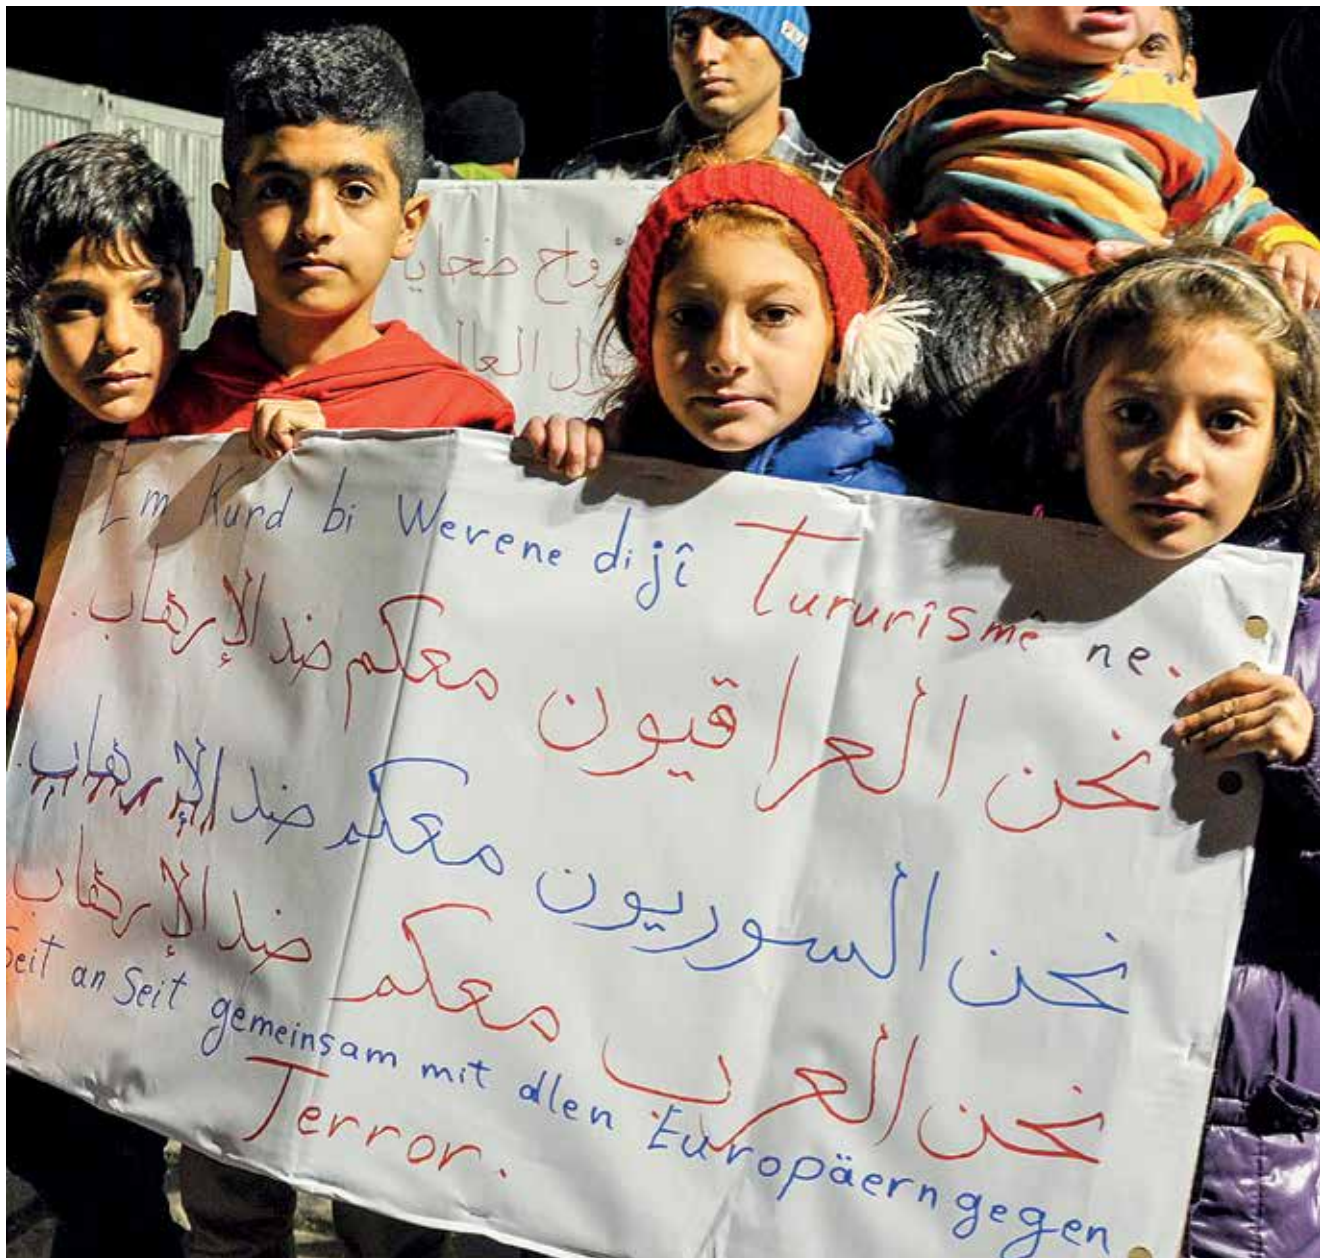 أرواح ضحايا
Em Kurd bi Werene dijî Tururîsmê ne.
نحن العراقيون معكم ضد الإرهاب.
نحن السوريون معكم ضد الإرهاب.
نحن العرب معكم ضد الإرهاب
Seit an Seit gemeinsam mit dlen Europäern gegen
Terror.